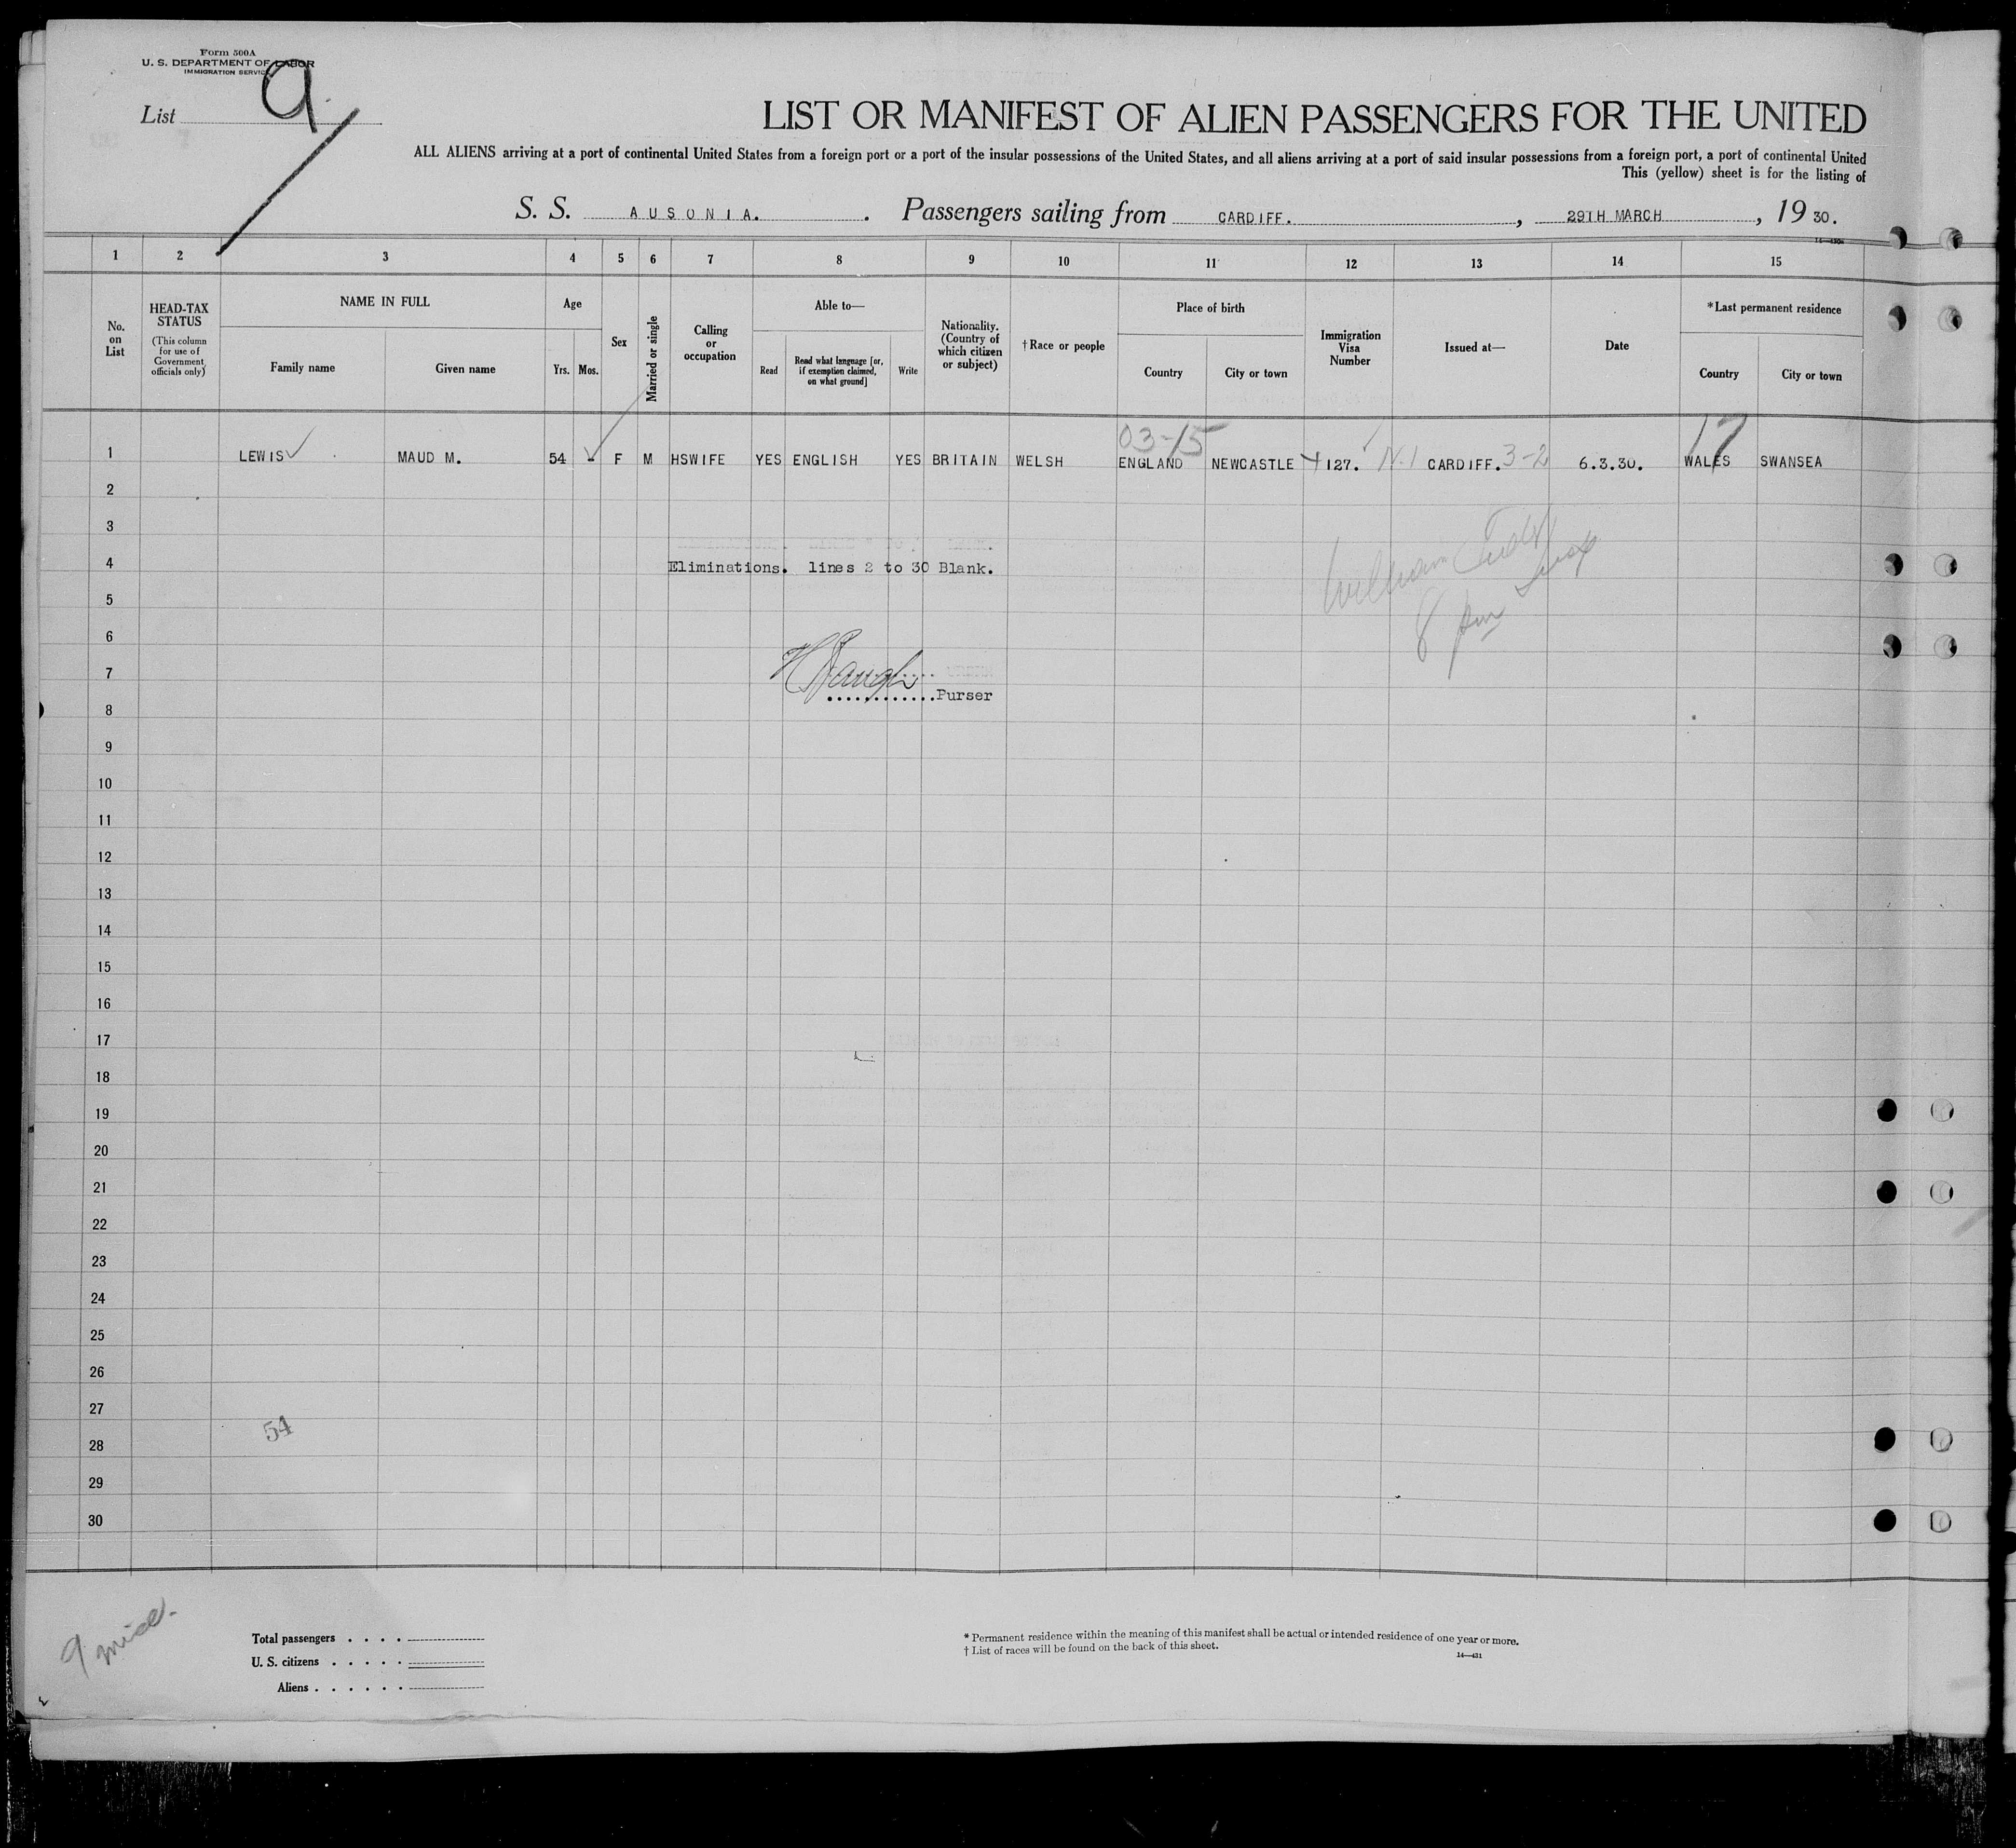 Form 500A
U. S. DEPARTMENT OF LABOR
IMMIGRATION SERVICE
List 9
LIST OR MANIFEST OF ALIEN PASSENGERS FOR THE UNITED
ALL ALIENS arriving at a port of continental United States from a foreign port or a port of the insular possessions of the United States, and all aliens arriving at a port of said insular possessions from a foreign port, a port of continental United
This (yellow) sheet is for the listing of
S. S. AUSONIA. . Passengers sailing from CARDIFF. , 29TH MARCH , 19 30.
1 2 3 4 5 6 7 8 9 10 11 12 13 14 15
No. on List
HEAD-TAX STATUS (This column for use of Government officials only)
NAME IN FULL
Family name
Given name
Age
Yrs. Mos.
Sex
Married or single
Calling or occupation
Able to—
Read
Read what language [or, if exemption claimed, on what ground]
Write
Nationality. (Country of which citizen or subject)
†Race or people
Place of birth
Country
City or town
Immigration Visa Number
Issued at—
Date
*Last permanent residence
Country
City or town
03-15 17
1 LEWIS MAUD M. 54 - F M HSWIFE YES ENGLISH YES BRITAIN WELSH ENGLAND NEWCASTLE 127. CARDIFF. 3-2 6.3.30. WALES SWANSEA
2
3
4 Eliminations. lines 2 to 30 Blank.
William
5
8 pm
6
7
Purser
8
9
10
11
12
13
14
15
16
17
18
19
20
21
22
23
24
25
26
27
54
28
29
30
9
Total passengers . . . .
U. S. citizens . . . . .
Aliens . . . . . .
* Permanent residence within the meaning of this manifest shall be actual or intended residence of one year or more.
† List of races will be found on the back of this sheet.
14—431